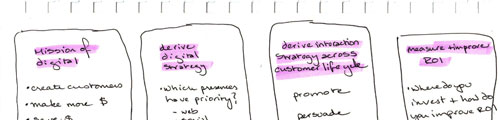 Mission of
digital
• create customers
• make more $
• save $
derive
digital
strategy
• which presences
have priority?
- web
- social
derive interaction
strategy across
customer lifecycle
promote
persuade
measure + improve
ROI
• where do you
invest + how do
you improve ROI